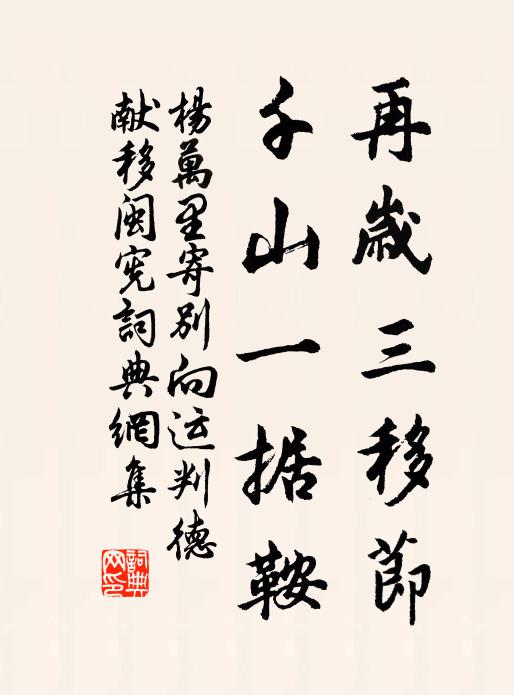 再歲三移節
千山一据鞍
楊萬里寄別向运判德
献移閩宪詞典網集
詞典网印